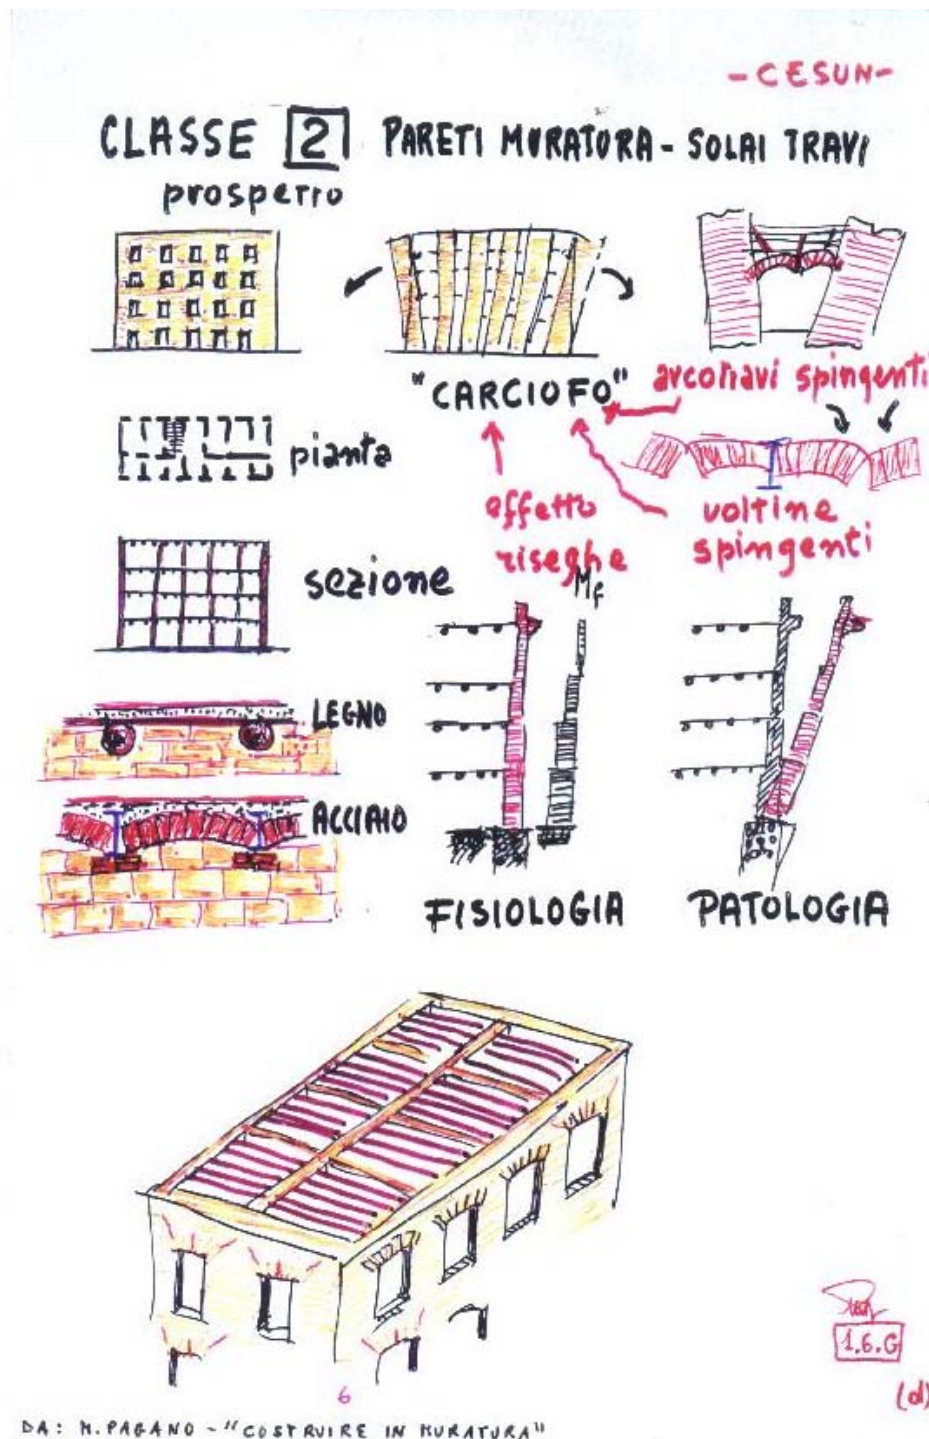 -CESUN-
CLASSE 2 PARETI MURATURA - SOLAI TRAVI
prospetto
"CARCIOFO"
arcotravi spingenti
pianta
effetto
riseghe
voltine
spingenti
sezione
Mf
LEGNO
ACCIAIO
FISIOLOGIA
PATOLOGIA
1.6.G
(d)
6
DA: M. PAGANO - "COSTRUIRE IN MURATURA"